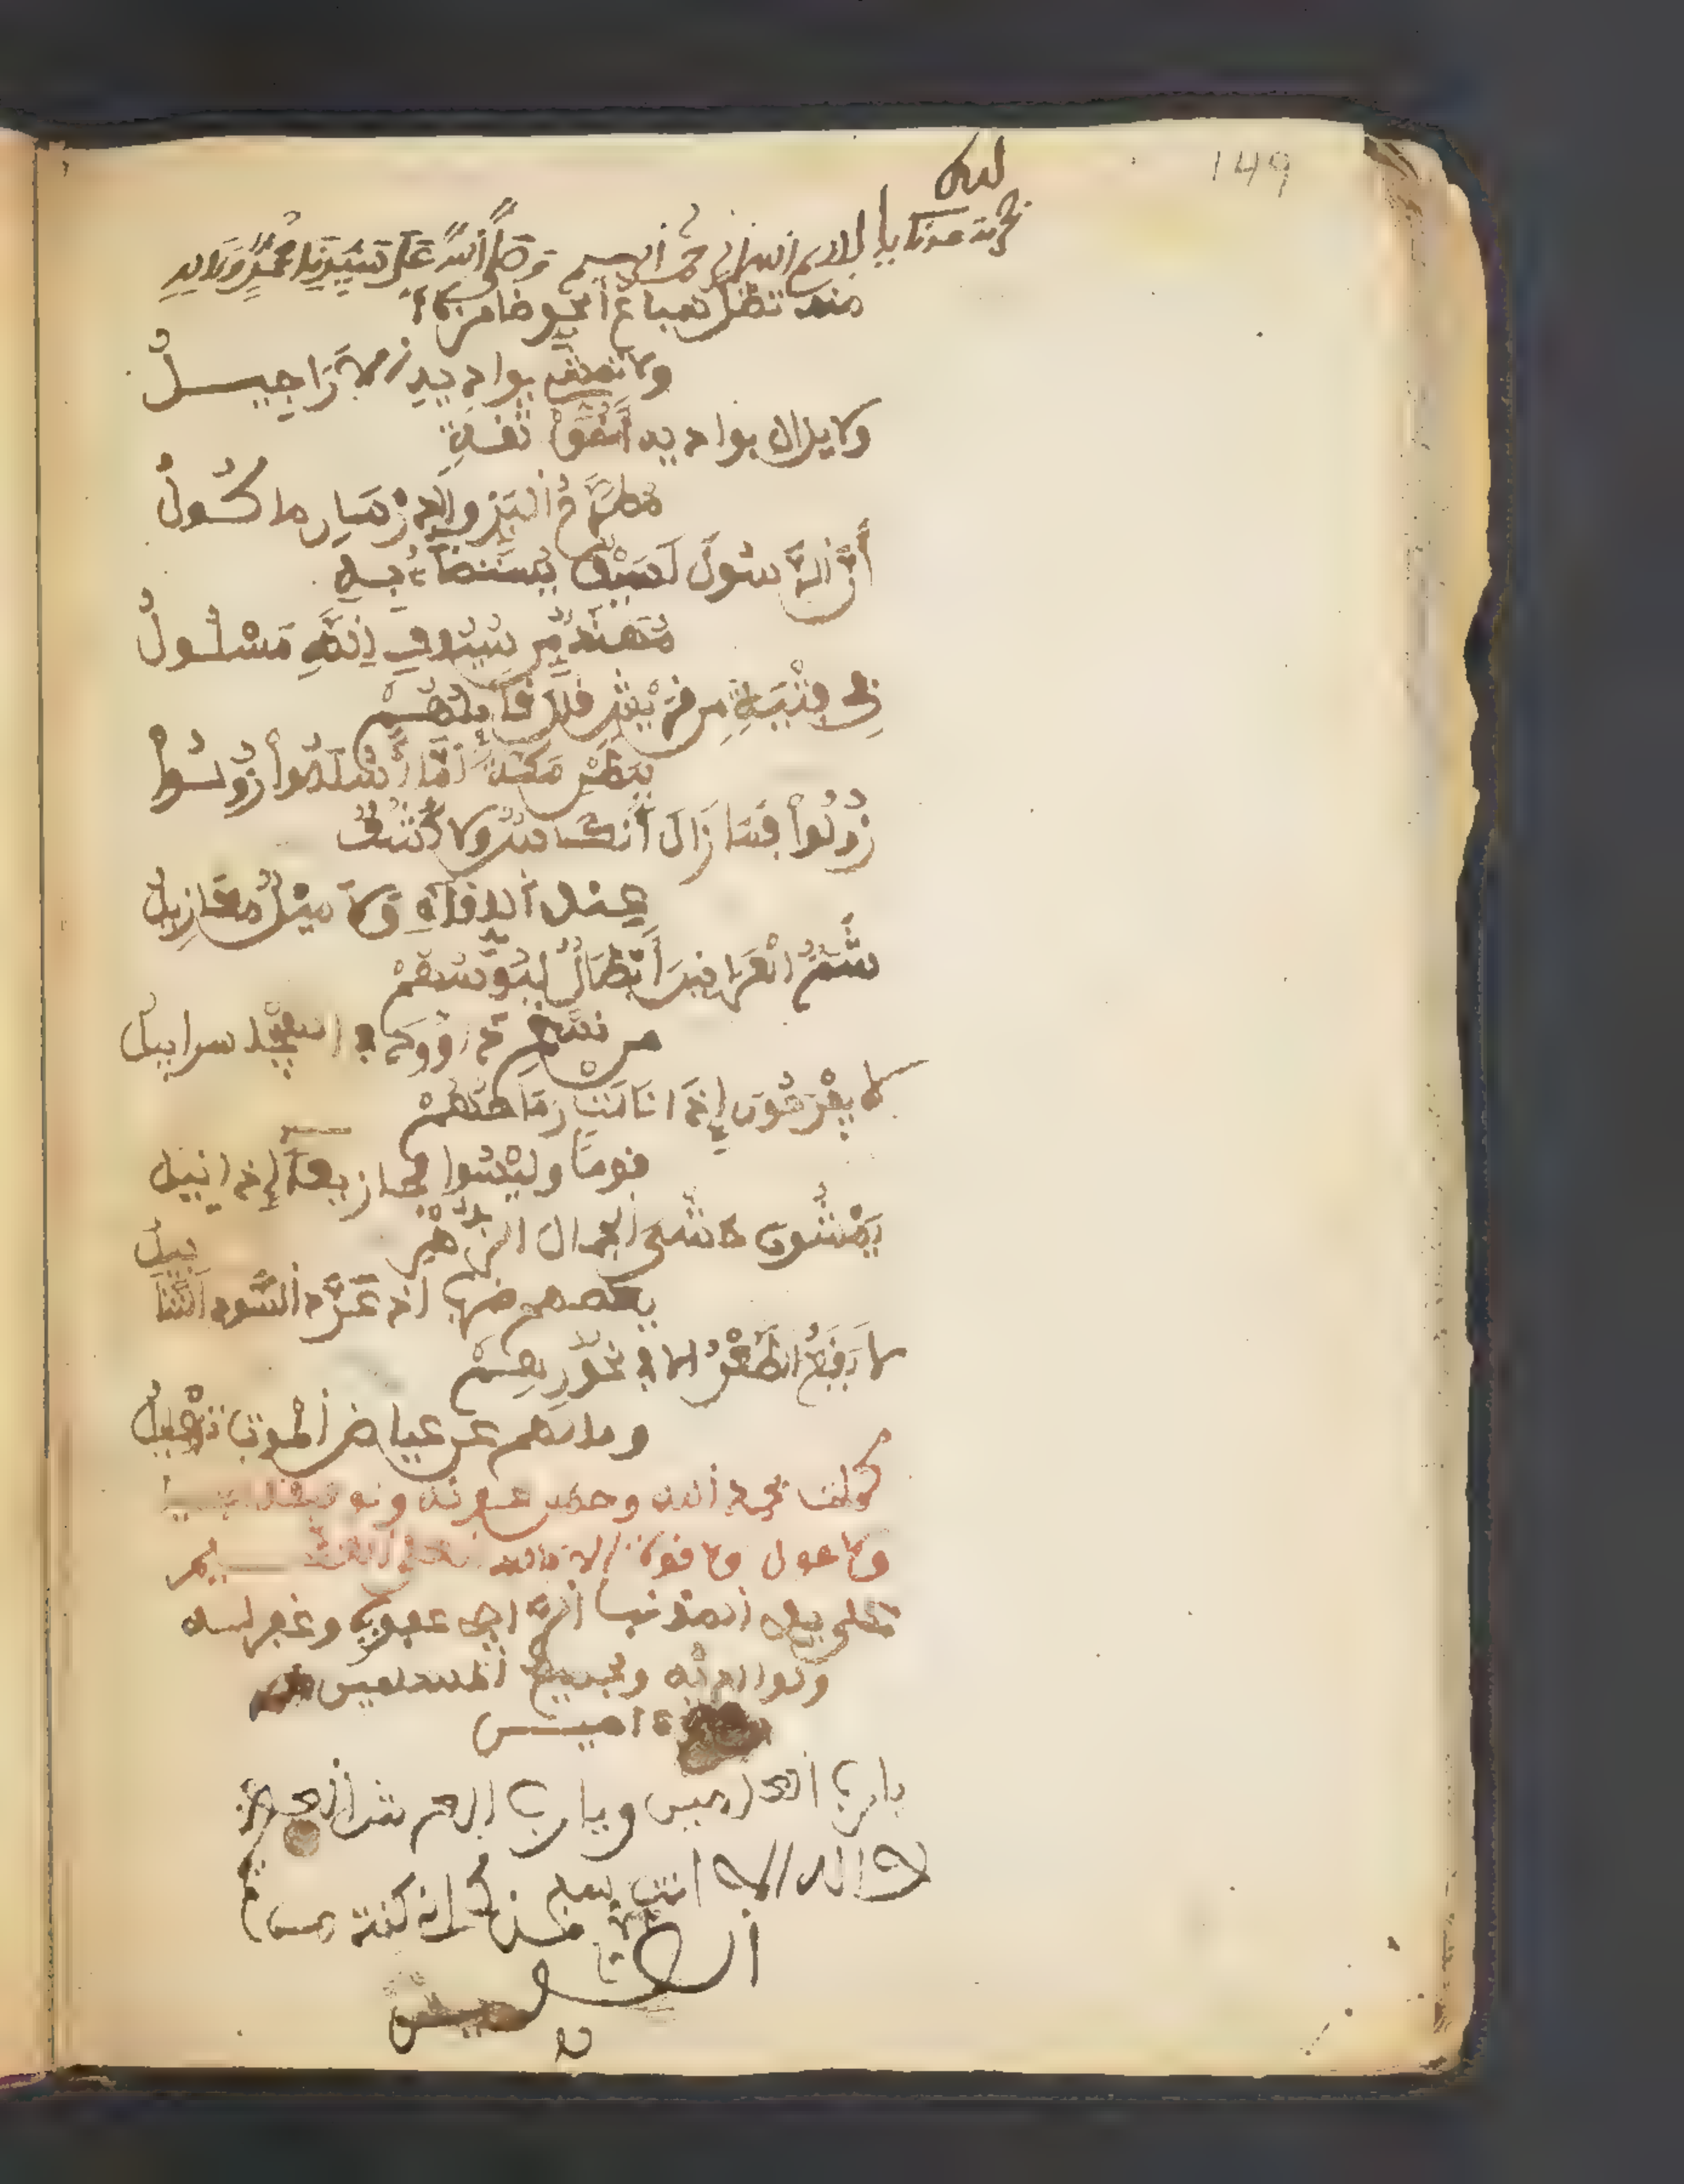 149
بسم الله الرحمن الرحيم وَصَلَّى اللَّهُ عَلَى سَيِّدِنَا مُحَمَّدٍ وَءَالِهِ
منه تظل سباع الجو ضامزة
ولا تمشي بواديه الاراجيــل
ولا يزال بواديه أَخُو ثقــةٍ
مُطَرَّحُ البَزِّ والدرْسَانِ ماكــولُ
أنَّ الرَّسُولَ لَسَيْفٌ يُسْتَضَاءُ بِــهِ
مُهَنَّدٌ مِن سُيُوفِ اللَّهِ مَسْلُــولُ
فِي فِتْيَةٍ مِن قُرَيْشٍ قَالَ قَائِلُهُــمْ
بِبَطْنِ مَكَّةَ لَمَّا أَسْلَمُوا زُولُــوا
زُولُوا فَمَا زَالَ أَنْكَاسٌ وَلَا كُشُفٌ
عِنْدَ اللِّقَاءِ وَلَا مِيلٌ مَعَازِيلُ
شُمُّ العَرَانِينَ أَبْطَالٌ لَبُوسُهُمْ
مِن نَسْجِ دَاوُودَ في الهَيْجَا سرابيلُ
لا يَفْرَحُونَ إِذَا نَالَتْ رِمَاحُهُمْ
قوماً ولَيْسُوا مجازيعاً إذا نيلوا
يَمْشُونَ مَشْيَ الجمال الزُّهْرِ
يعصمهم ضرب اذ عَرَّدَ السُّود التَّنَابِيلُ
لا يَقَعُ الطَّعْنُ الا في نُحُورِهِــمْ
وما لهم عن حياض الموت تَهْلِيلُ
كملت بحمد الله وحسن عونه وتوفيقه
ولا حول ولا قوة الا بالله العلي العظــيم
على يد المذنب الراجي عفو ربه وغفر لــه
ولوالديه ولجميع المسلمين
ءاميــن
يا رب العالمين ويا رب العرش العظيم
لا اله الا انت سبحانك اني كنت من
الظالمين